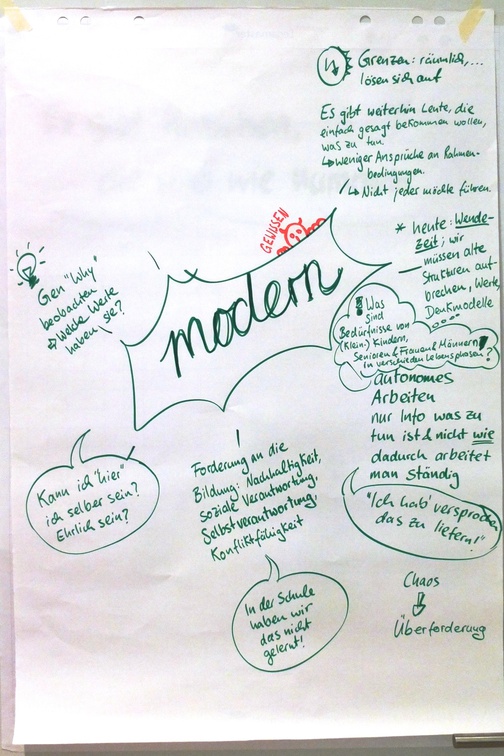 Grenzen: räumlich,...
lösen sich auf
Es gibt weiterhin Leute, die
einfach gesagt bekommen wollen,
was zu tun.
↳ weniger Ansprüche an Rahmen-
bedingungen.
↳ Nicht jeder möchte führen.
GEWISSEN
* heute: Wende-
zeit; wir
müssen alte
Strukturen auf-
brechen, Werte,
Denkmodelle
Gen "Why"
beobachten
⇒ Welche Werte
haben sie?
modern
! Was
sind
Bedürfnisse von
(Klein-) Kindern,
Senioren & Frauen & Männern
in verschieden Lebensphasen?
autonomes
Arbeiten
nur Info was zu
tun ist & nicht wie
dadurch arbeitet
man ständig
"Ich hab' versprochen
das zu liefern!"
Chaos
⇓
Überforderung
Kann ich "hier"
ich selber sein?
Ehrlich sein?
Forderung an die
Bildung: Nachhaltigkeit,
soziale Verantwortung,
Selbstverantwortung,
Konfliktfähigkeit
In der Schule
haben wir
das nicht
gelernt!